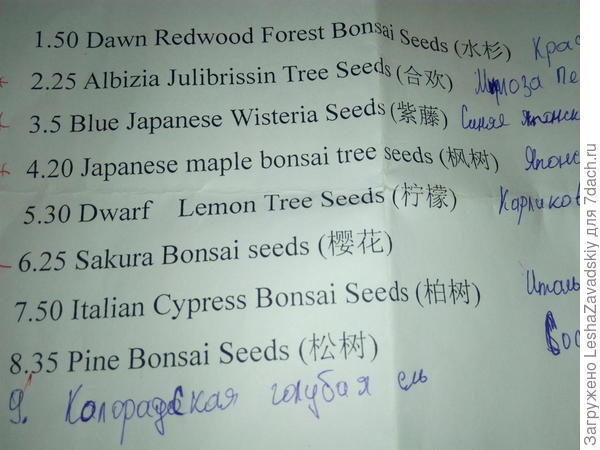 1.50 Dawn Redwood Forest Bonsai Seeds (水杉)
2.25 Albizia Julibrissin Tree Seeds (合欢) Мимоза
3.5 Blue Japanese Wisteria Seeds (紫藤) Синяя
4.20 Japanese maple bonsai tree seeds (枫树)
5.30 Dwarf Lemon Tree Seeds (柠檬)
6.25 Sakura Bonsai seeds (樱花)
7.50 Italian Cypress Bonsai Seeds (柏树)
8.35 Pine Bonsai Seeds (松树)
9. Калорадская голубая ель
Загружено LeshaZavadskiy для 7dach.ru